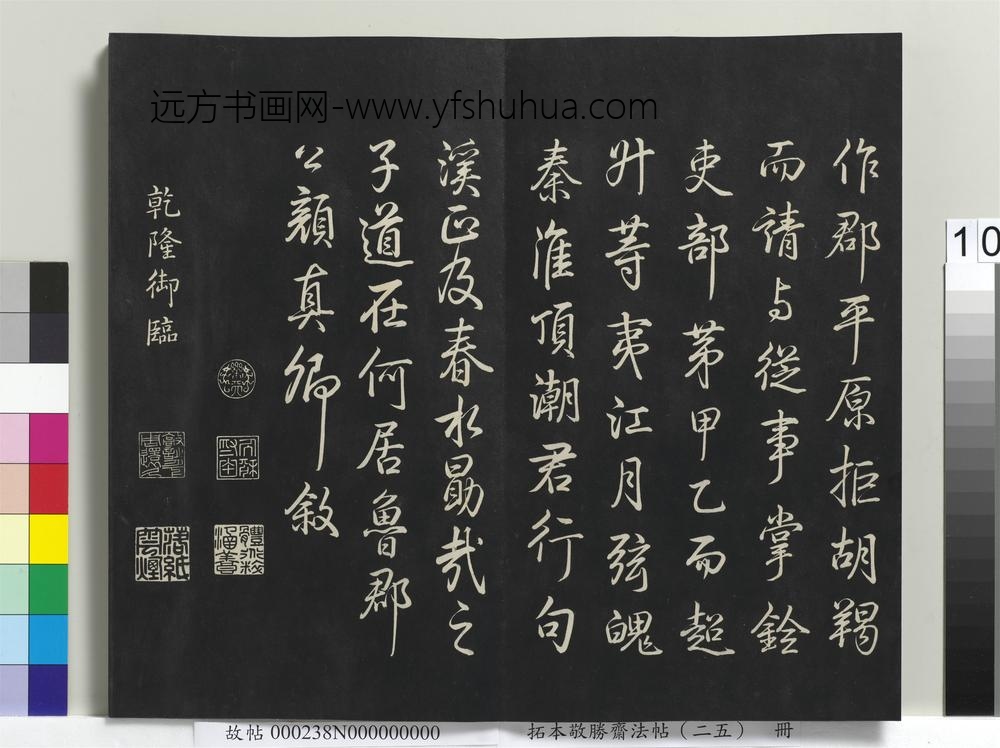 远方书画网-www.yfshuhua.com
作郡平原拒胡羯
而請与從事掌銓
吏部苐甲乙而超
升等夷江月弦魄
秦淮頂潮君行句
溪正及春水勗哉之
子道在何居魯郡
公顏真卿敘
乾隆御臨
落紙雲煙
10
故帖 000238N000000000
拓本敬勝齋法帖（二五） 冊